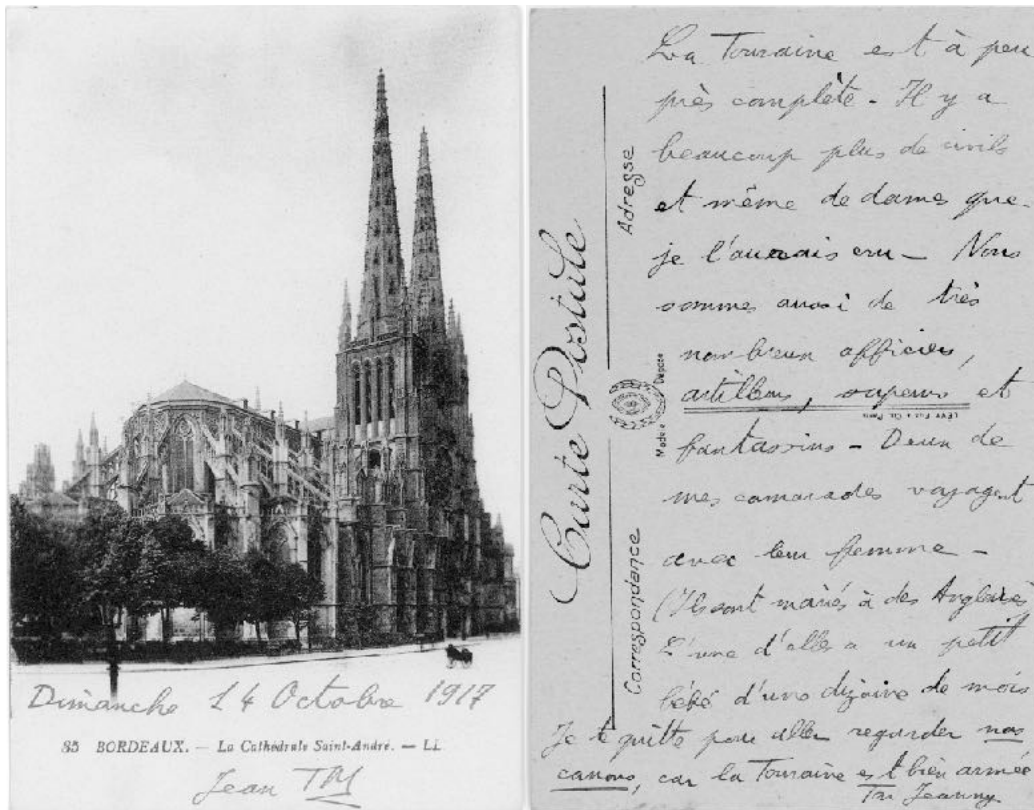 Dimanche 14 Octobre 1917
85 BORDEAUX. — La Cathédrale Saint-André. — LL
Jean TM
Carte Postale
Correspondance
Adresse
Modèle Déposé
LÉVY Fils & Cie, Paris
La Touraine est à peu
près complète - Il y a
beaucoup plus de civils
et même de dames que
je l'aurais cru - Nous
sommes aussi de très
nombreux officiers,
artilleurs, sapeurs et
fantassins - Deux de
mes camarades voyagent
avec leur femme -
(Ils sont mariés à des Anglaises
L'une d'elles a un petit
bébé d'une dizaine de mois
Je te quitte pour aller regarder nos
canons, car la Touraine est bien armée
Jeanny